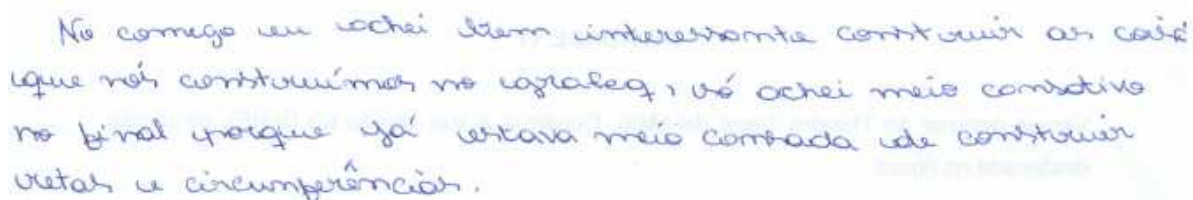 No começo eu achei bem interessante construir as coisa
que nós construímos no igraleq, só achei meio cansativo
no final porque já estava meio cansada de construir
retas e circunferências.